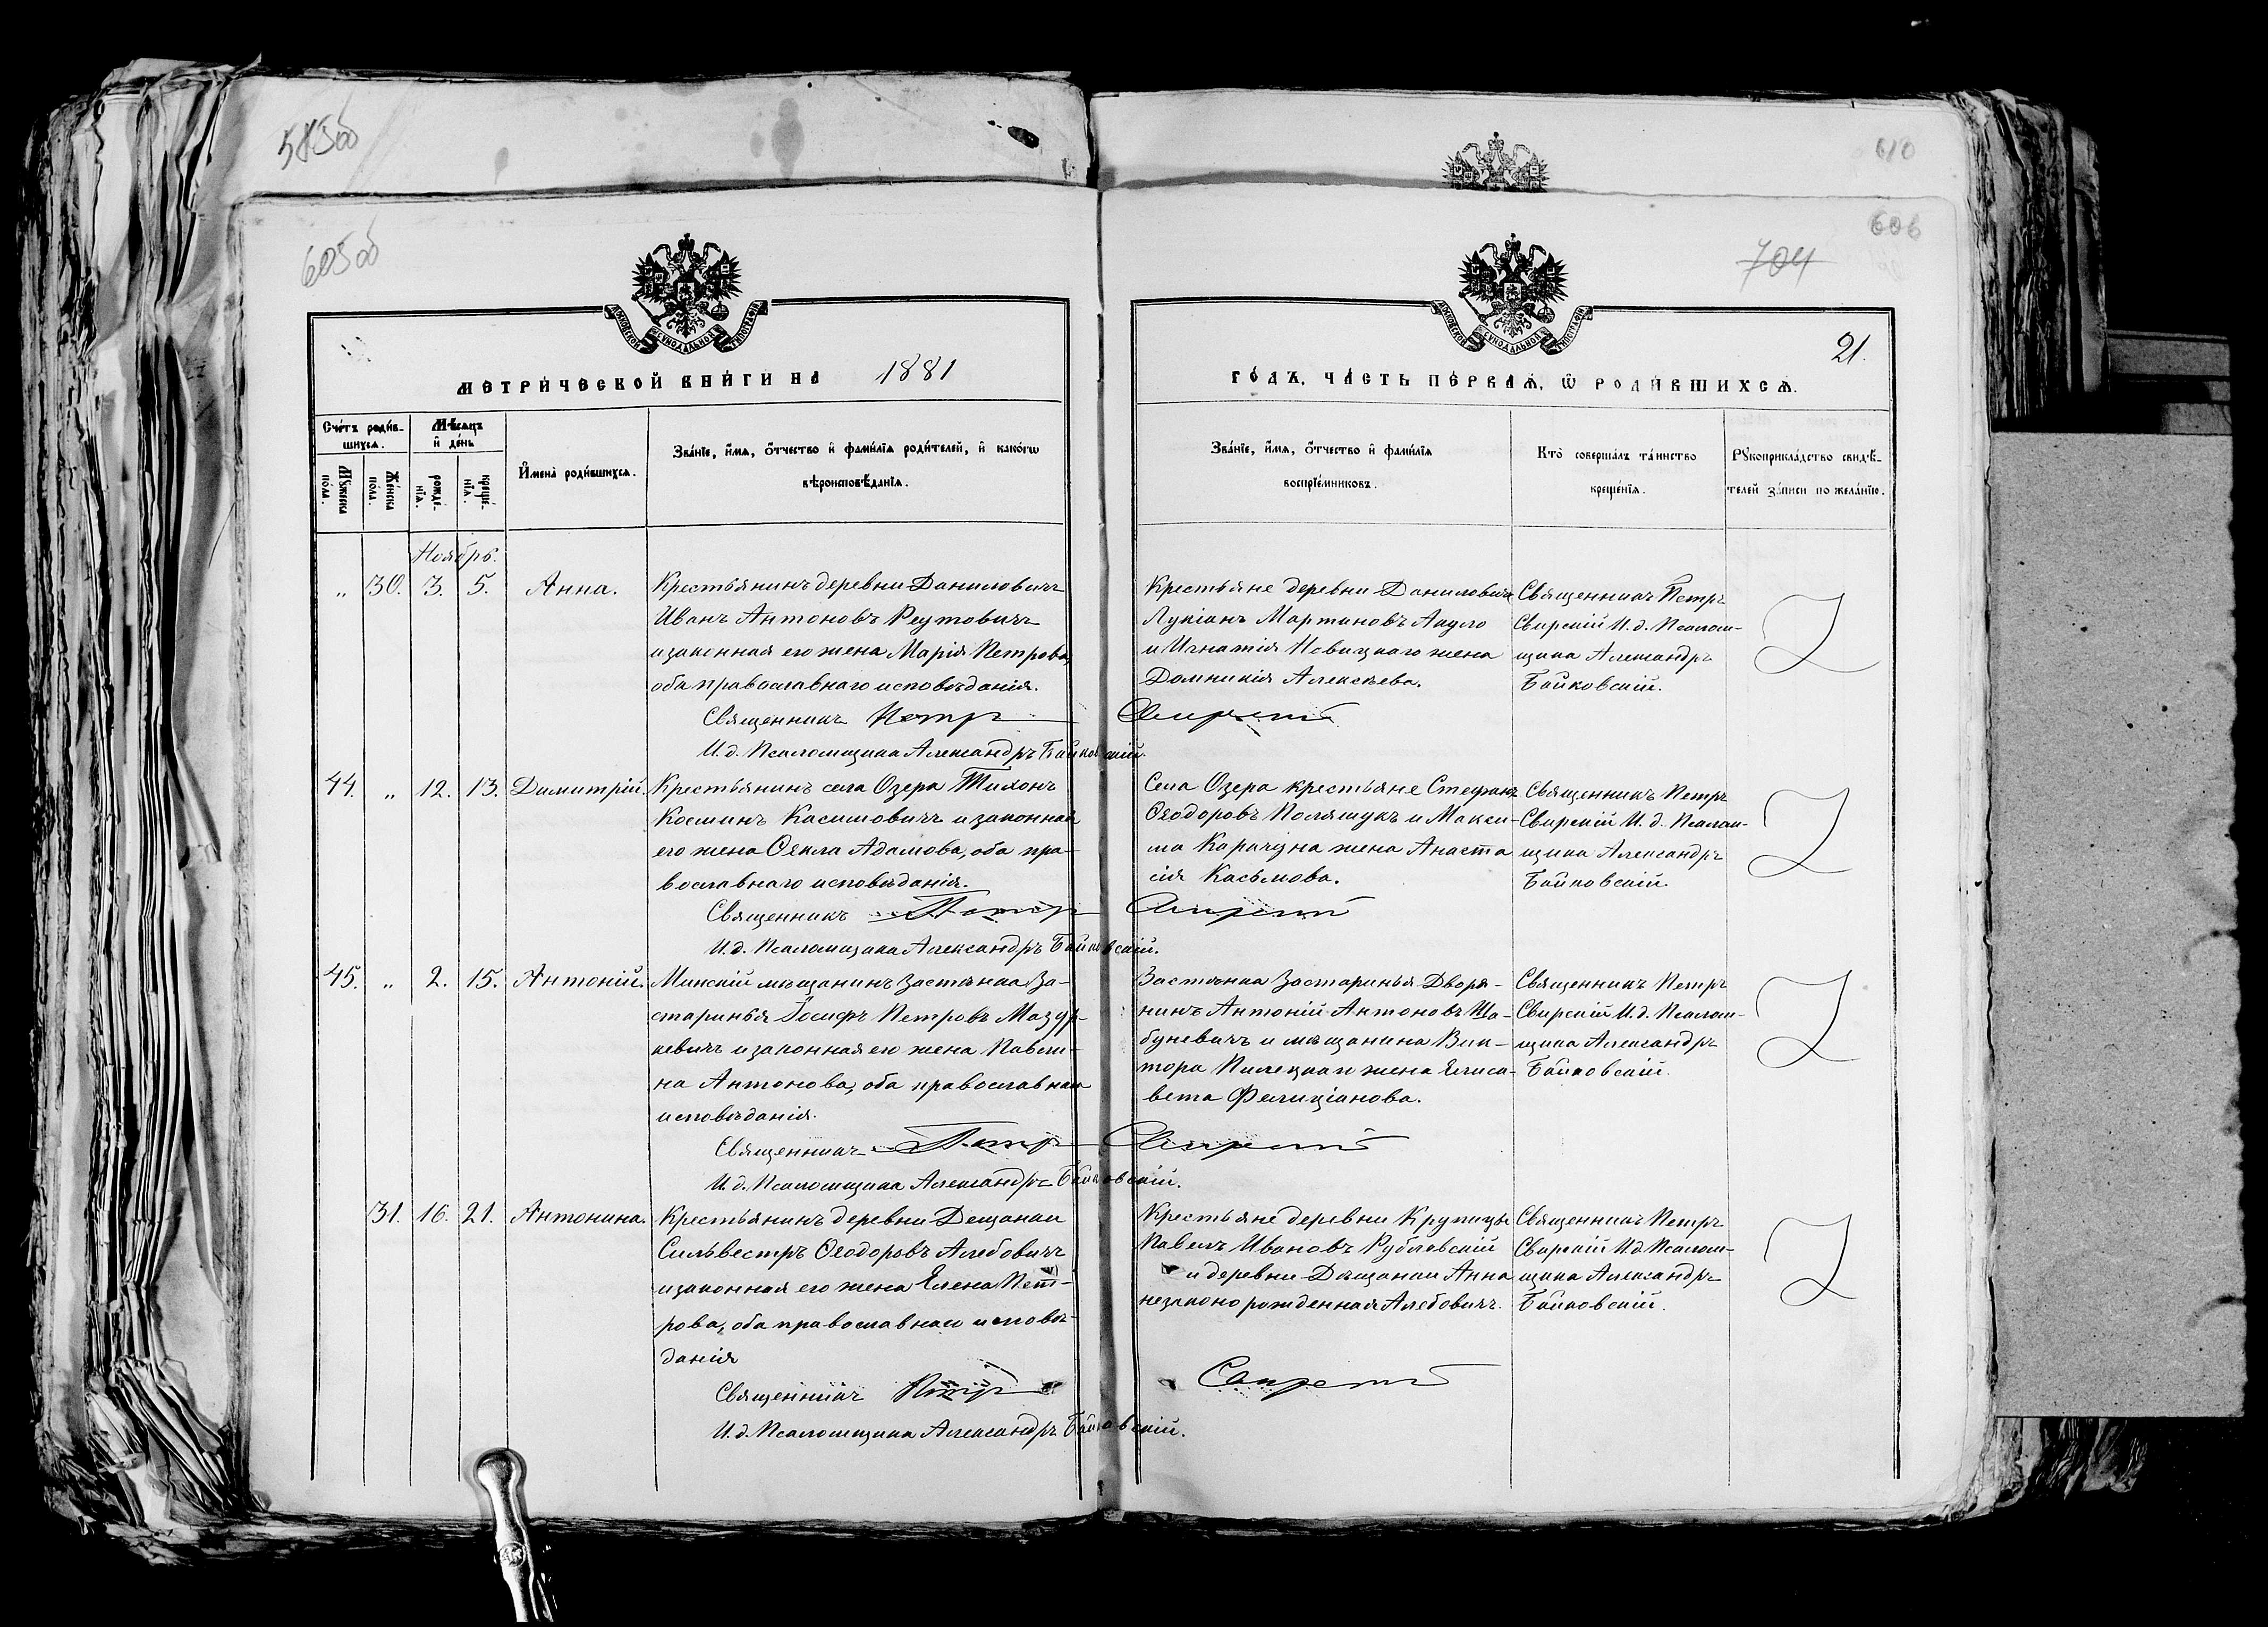 585об
610
605об
606
704
21.
МОСКОВСКОЙ СѴНОДАЛЬНОЙ ТИПОГРАФІИ
МОСКОВСКОЙ СѴНОДАЛЬНОЙ ТИПОГРАФІИ
МЕТРИ́ЧЕСКОЙ КНИ́ГИ НА 1881
ГО́ДЪ, ЧА́СТЬ ПЕ́РВАЯ, Ѡ РОДИ́ВШИХСЯ.
Сче́тъ роди́в-
шихся.
Мѣ́сяцъ
и де́нь
Му́жеска
по́ла.
Же́нска
по́ла.
рожде́-
нїя.
креще́-
нїя.
Имена̀ роди́вшихся.
Зва́нїе, и́мя, о́тчество и фами́лїя роди́телей, и како́гѡ
вѣроисповѣ́данїя.
Зва́нїе, и́мя, о́тчество и фами́лїя
воспрїе́мниковъ.
Кто̀ соверша́лъ та́инство
креще́нїя.
Рукоприкла́дство свидѣ́-
телей за́писи по жела́нїю.
Ноябрь.
„ 30. 3. 5. Анна.
Крестьянинъ деревни Даниловичъ
Иванъ Антоновъ Реутовичъ
и законная его жена Марія Петрова,
оба православнаго исповѣданія.
Священникъ Петръ Свирскій
И.д. Псаломщика Александръ Байковскій.
Крестьяне деревни Даниловичъ
Лукіанъ Мартиновъ Акуло
и Игнатія Новицкаго жена
Домникія Алексѣева.
Священникъ Петръ
Свирскій И.д. Псалом-
щика Александръ
Байковскій.
44. „ 12. 13. Димитрій.
Крестьянинъ села Озера Тихонъ
Косминъ Касимовичъ и законная
его жена Ѳекла Адамова, оба пра-
вославнаго исповѣданія.
Священникъ Петръ Свирскій
И.д. Псаломщика Александръ Байковскій.
Села Озера крестьяне Стефанъ
Ѳеодоровъ Полящукъ и Макси-
ма Карачуна жена Анаста
сія Касьмова.
Священникъ Петръ
Свирскій И.д. Псалом-
щика Александръ
Байковскій.
45. „ 2. 15. Антоній.
Минскій мѣщанинъ Застѣнка За-
старинья Іосифъ Петровъ Мазур-
кевичъ и законная его жена Павли-
на Антонова, оба православнаго
исповѣданія.
Священникъ Петръ Свирскій
И.д. Псаломщика Александръ Байковскій.
Застѣнка Застаринья Дворя-
нинъ Антоній Антоновъ Ша-
буневичъ и мѣщанина Вик-
тора Пилецкаго жена Елиса-
вета Фелиціанова.
Священникъ Петръ
Свирскій И.д. Псалом-
щика Александръ
Байковскій.
31. 16. 21. Антонина.
Крестьянинъ деревни Дещанки
Сильвестръ Ѳеодоровъ Алебовичъ
и законная его жена Елена Пет-
рова, оба православнаго исповѣ-
данія
Священникъ Петръ Свирскій
И.д. Псаломщика Александръ Байковскій.
Крестьяне деревни Крупицы
Павелъ Ивановъ Рублевскій
и деревни Дещанки Анна
незаконорожденная Алебовичъ.
Священникъ Петръ
Свирскій И.д. Псалом-
щика Александръ
Байковскій.